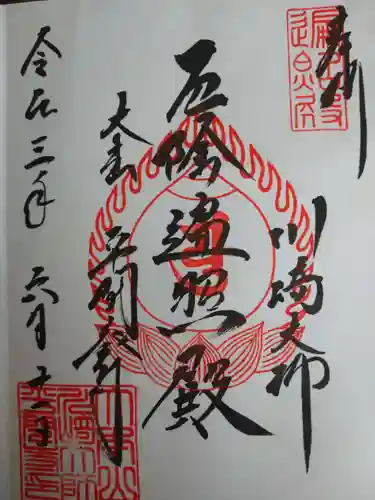 奉拝
川崎大師
厄除遍照殿
大本山
平間寺
令和三年 六月十一日